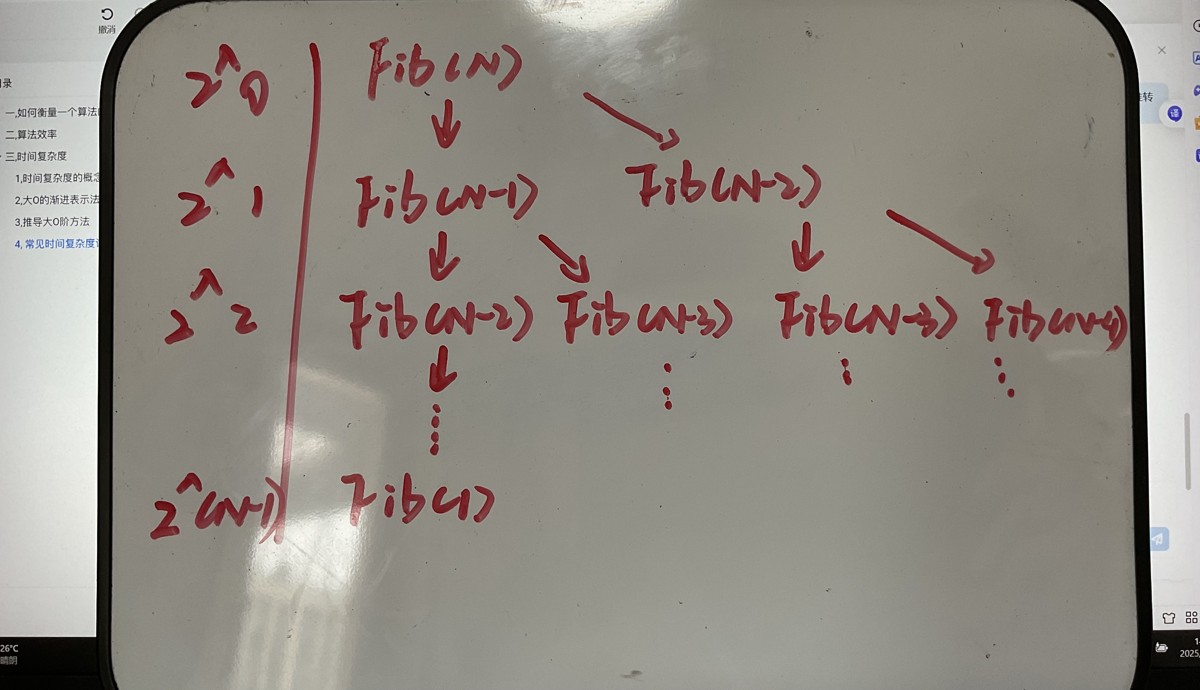 撤消
一,如何衡量一个算法
二,算法效率
三,时间复杂度
1,时间复杂度的概念
2,大O的渐进表示法
3,推导大O阶方法
4, 常见时间复杂度
2^0 Fib(N)
2^1 Fib(N-1) Fib(N-2)
2^2 Fib(N-2) Fib(N-3) Fib(N-3) Fib(N-4)
2^(N-1) Fib(1)
译
26°C
晴朗
2025